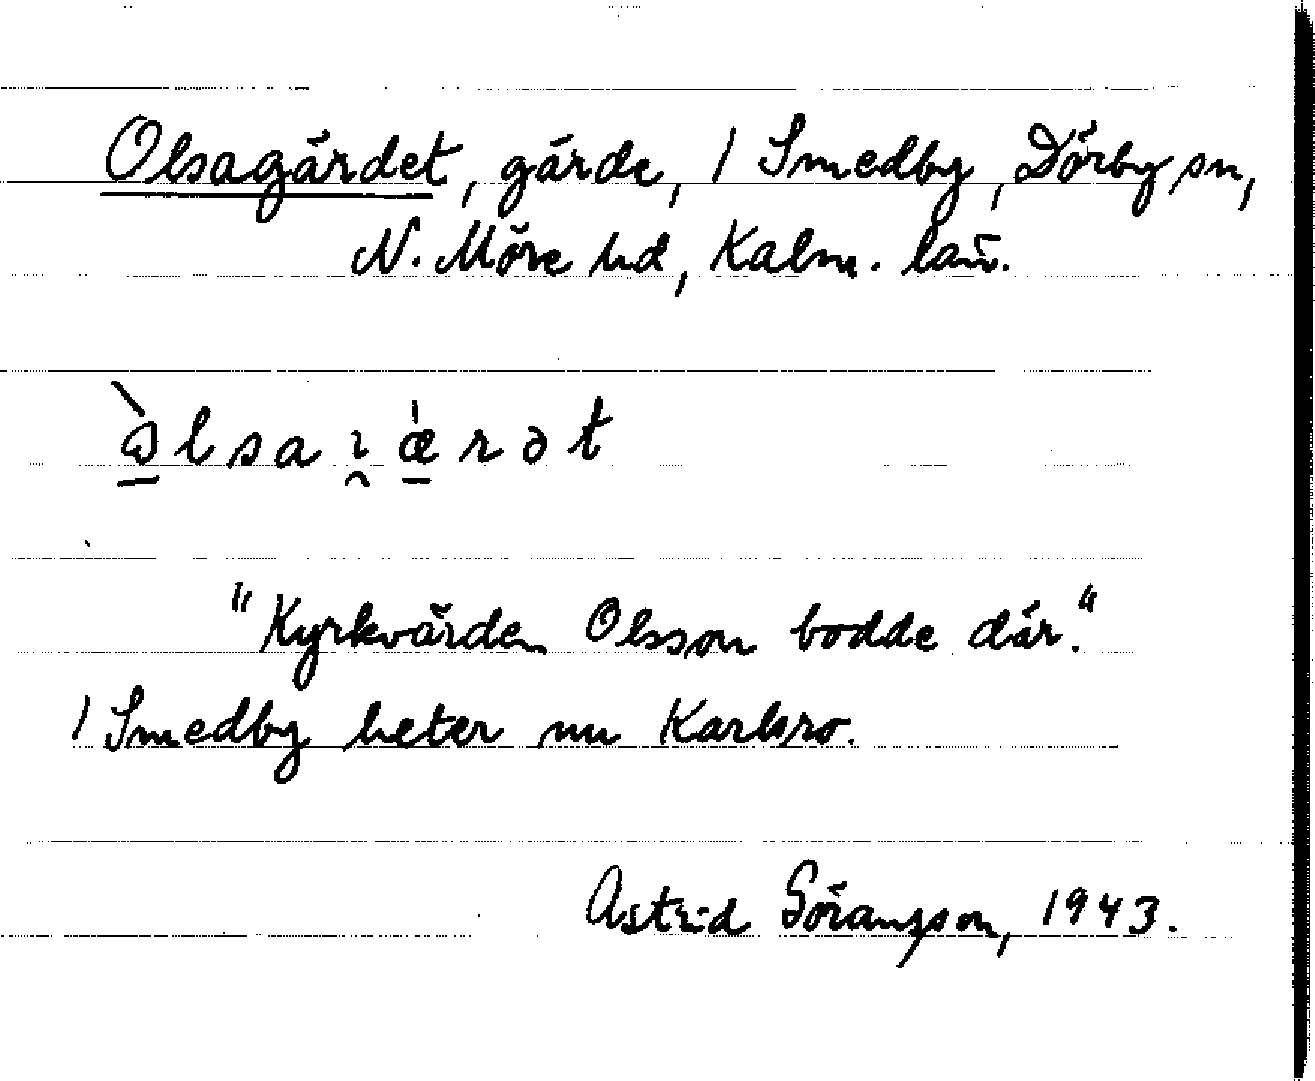 Olsagärdet, gärde, 1 Smedby, Dörby sn,
N. Möre hd, Kalm. län.
"Kyrkvärden Olsson bodde där."
1 Smedby heter nu Karlsro.
Astrid Göransson, 1943.